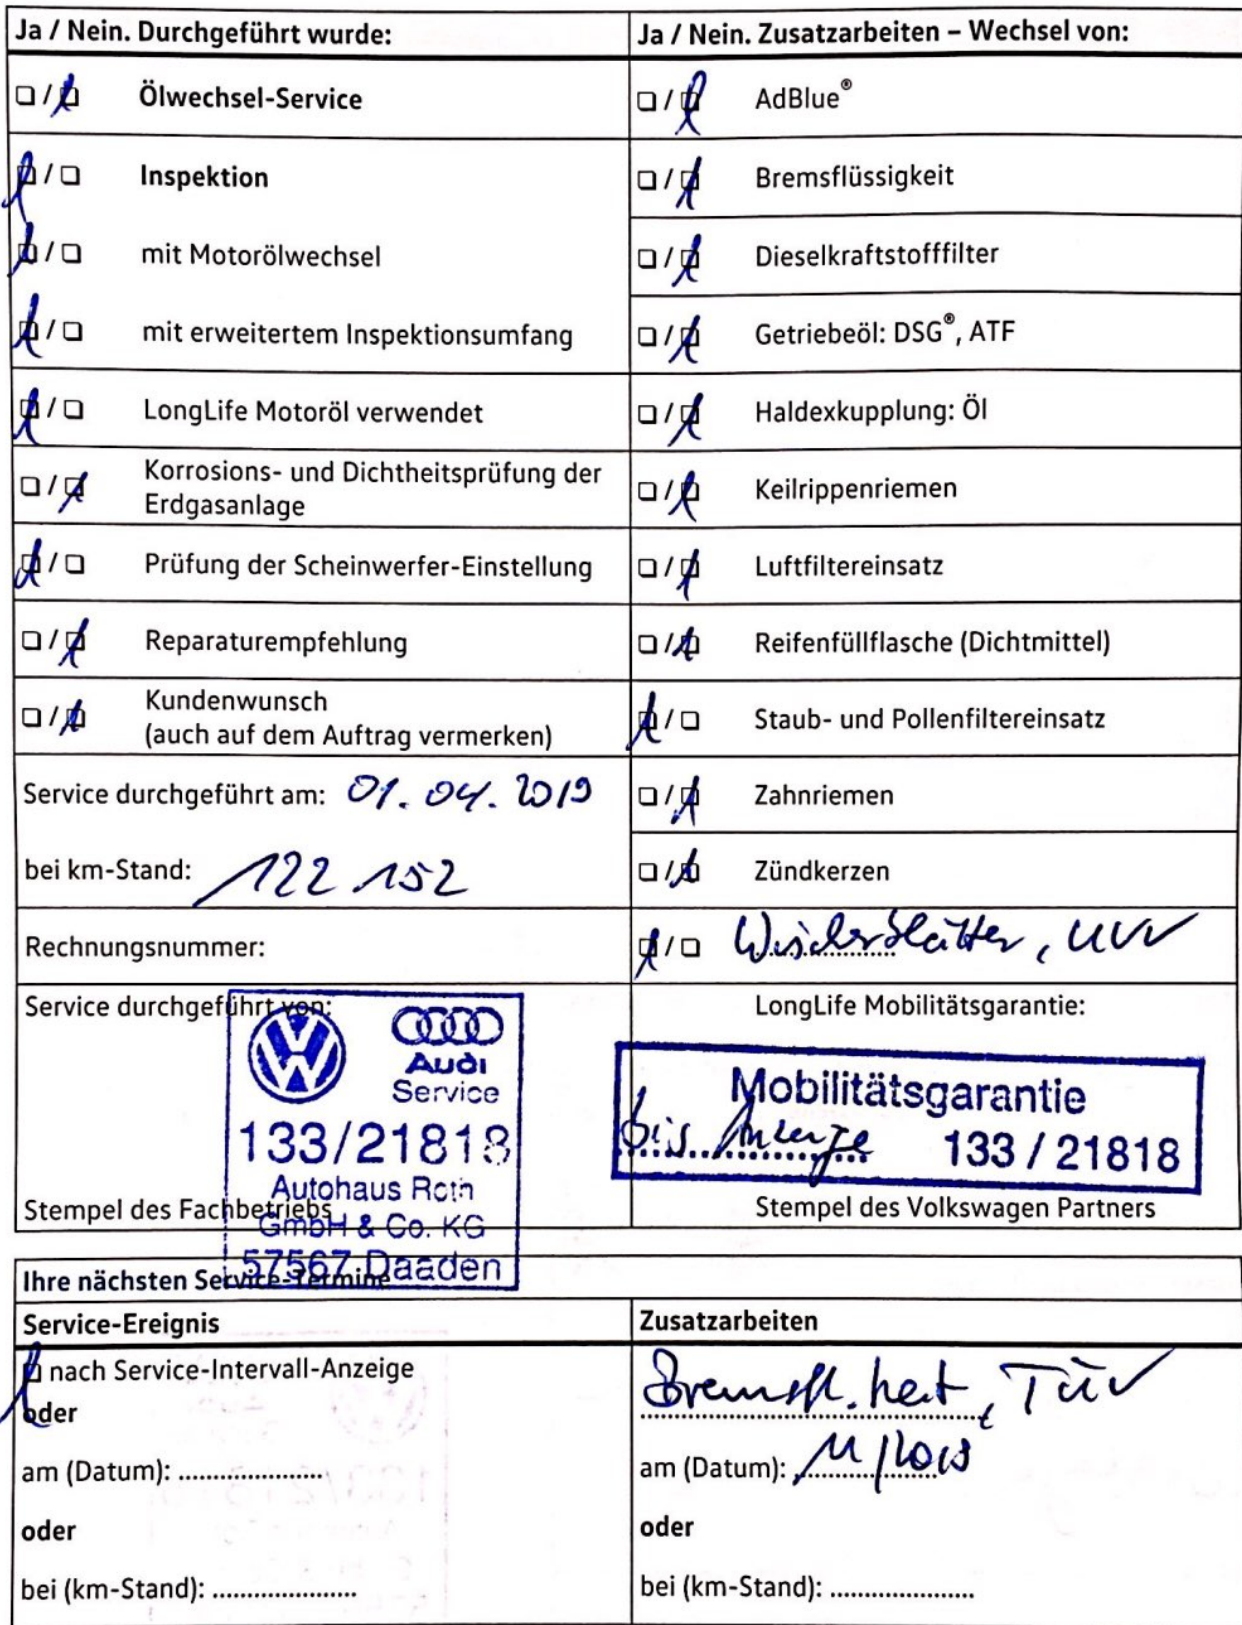 Ja / Nein. Durchgeführt wurde:
Ja / Nein. Zusatzarbeiten – Wechsel von:
/ Ölwechsel-Service
/ AdBlue®
/ Inspektion
/ Bremsflüssigkeit
/ mit Motorölwechsel
/ Dieselkraftstofffilter
/ mit erweitertem Inspektionsumfang
/ Getriebeöl: DSG®, ATF
/ LongLife Motoröl verwendet
/ Haldexkupplung: Öl
/ Korrosions- und Dichtheitsprüfung der
Erdgasanlage
/ Keilrippenriemen
/ Prüfung der Scheinwerfer-Einstellung
/ Luftfiltereinsatz
/ Reparaturempfehlung
/ Reifenfüllflasche (Dichtmittel)
/ Kundenwunsch
(auch auf dem Auftrag vermerken)
/ Staub- und Pollenfiltereinsatz
Service durchgeführt am: 01.04.2019
/ Zahnriemen
bei km-Stand: 122 152
/ Zündkerzen
Rechnungsnummer:
/ Wischerblätter, UVV
Service durchgeführt von:
LongLife Mobilitätsgarantie:
Audi
Service
133/21818
Autohaus Roth
GmbH & Co. KG
57567 Daaden
Mobilitätsgarantie
bis Anzeige 133 / 21818
Stempel des Fachbetriebs
Stempel des Volkswagen Partners
Ihre nächsten Service-Termine
Service-Ereignis
Zusatzarbeiten
nach Service-Intervall-Anzeige
Bremsfl.keit, TÜV
oder
am (Datum): ....................
am (Datum): 11/2019
oder
oder
bei (km-Stand): ....................
bei (km-Stand): ....................